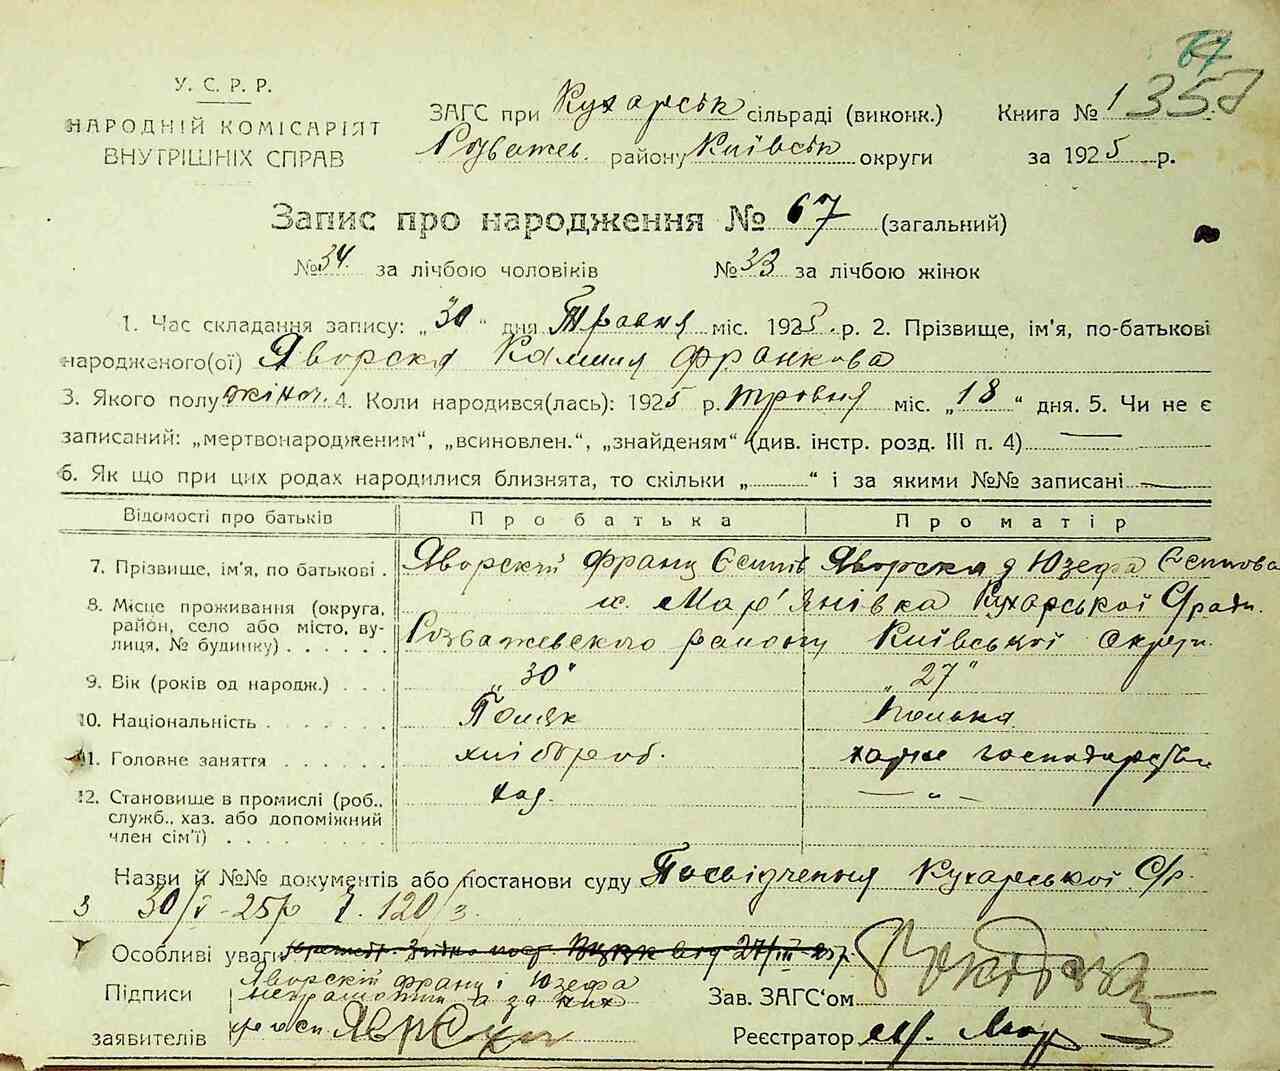 67
357
У. С. Р. Р.
НАРОДНІЙ КОМІСАРІЯТ
ВНУТРІШНІХ СПРАВ
ЗАГС при Кухарськ сільраді (виконк.)
Розважев. району Київськ округи
Книга № 1
за 1925 р.
Запис про народження № 67 (загальний)
№ 34. за лічбою чоловіків № 33 за лічбою жінок
1. Час складання запису: „30“ дня Травня міс. 1925. р. 2. Прізвище, ім'я, по-батькові
народженого(ої) Яворска Камиля Франкова
3. Якого полу жіноч. 4. Коли народився(лась): 1925 р. травня міс. „18“ дня. 5. Чи не є
записаний: „мертвонародженим“, „всиновлен.“, „знайденям“ (див. інстр. розд. III п. 4)
6. Як що при цих родах народилися близнята, то скільки „ “ і за якими №№ записані
Відомості про батьків Про батька Про матір
7. Прізвище, ім'я, по батькові . Яворскій Франц Єсипів Яворска Юзефа Єсипова
8. Місце проживання (округа, район, село або місто, вулиця, № будинку) с. Мар'янівка Кухарської С/ради
Розважевского району Київської Округи.
9. Вік (років од народж.) . . . „30“ „27“
10. Національність Поляк Полька
11. Головне заняття хлібороб. хатне господарство
12. Становище в промислі (роб., служб., хаз. або допоміжний член сім'ї) хаз. — „ —
Назви й №№ документів або постанови суду Посвідчення Кухарської С/р.
з 30/V-25р 120/з.
Особливі уваги
Підписи Яворскій Франц і Юзефа
неграмотні а за них
заявителів
Зав. ЗАГС'ом
Реєстратор